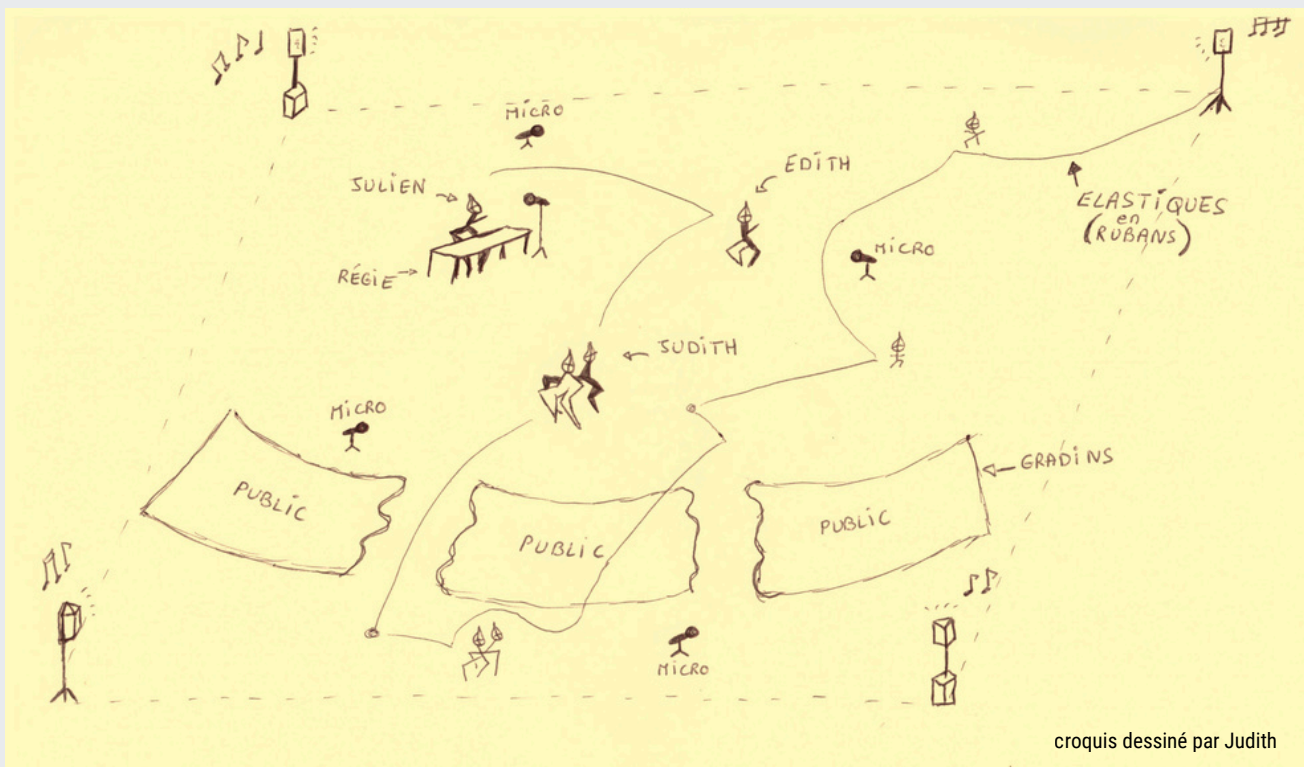 MICRO
EDITH
JULIEN
ELASTIQUES
en
(RUBANS)
MICRO
RÉGIE
JUDITH
MICRO
GRADINS
PUBLIC
PUBLIC
PUBLIC
MICRO
croquis dessiné par Judith